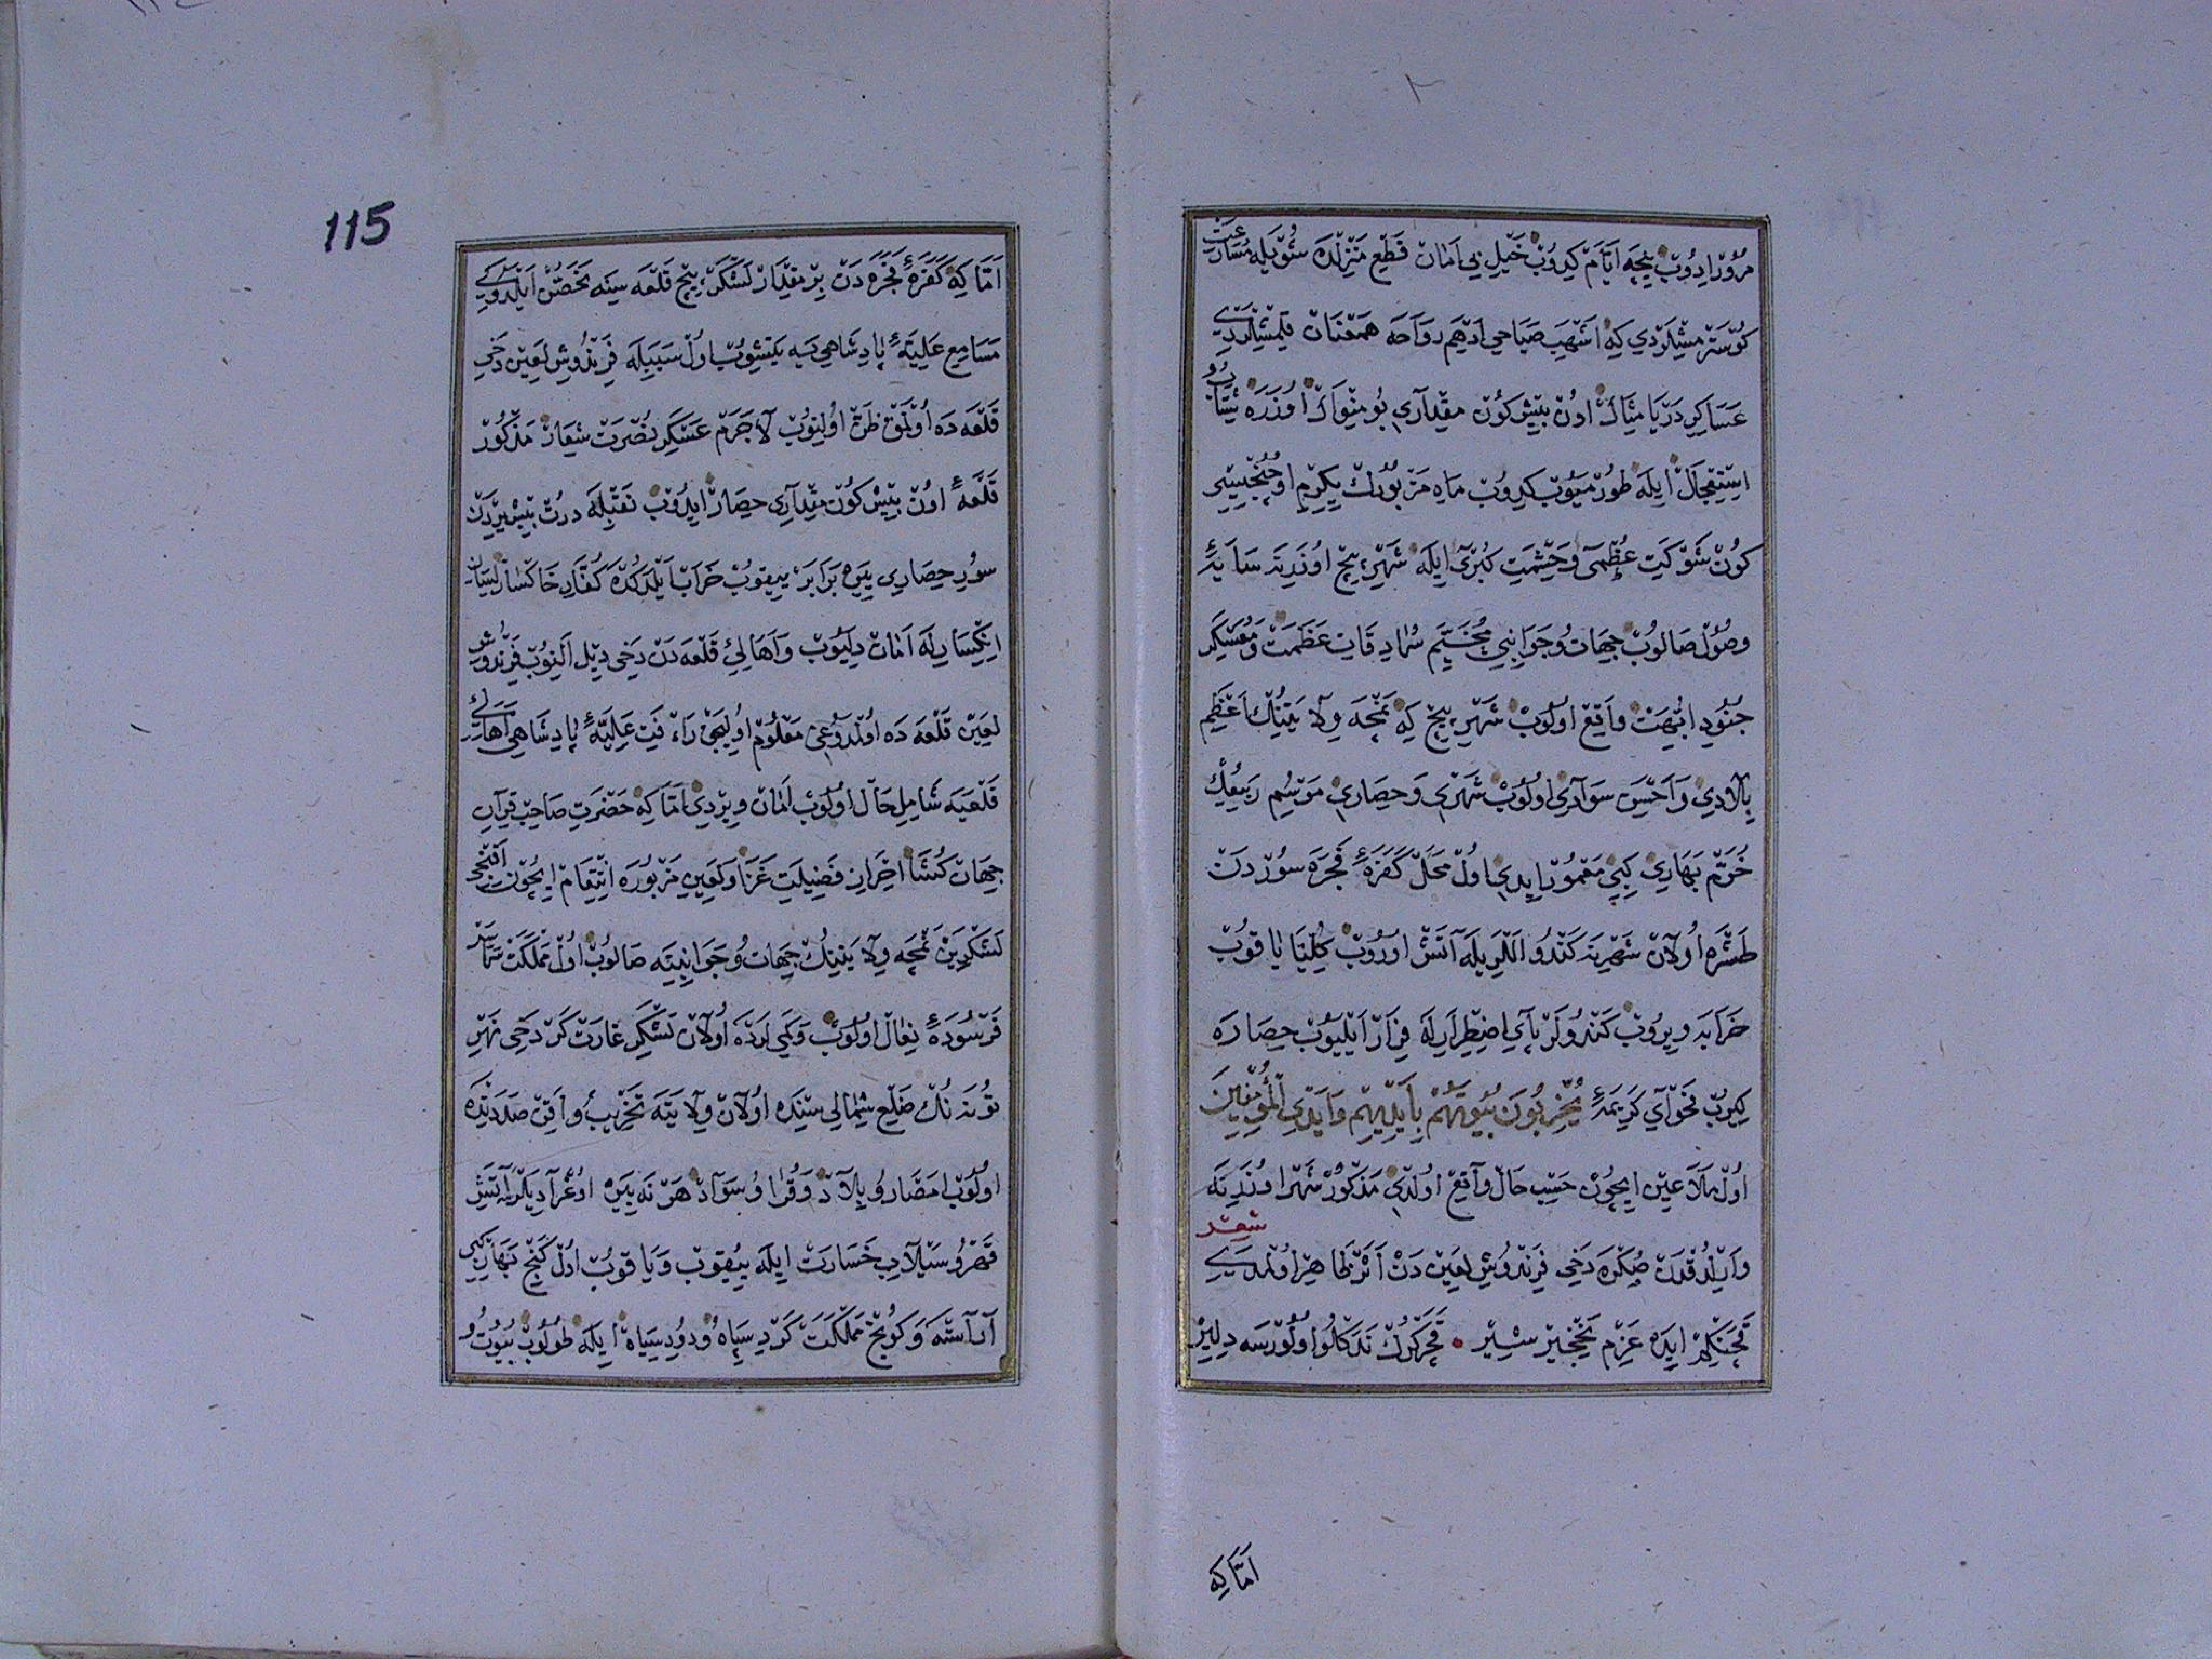 مُرُورْ ایدُوبْ نِیجَه اَیَّامْ کِیدُوبْ خَیْلِ بی اَمَانْ قَطْعِ مَنْزِلْدَه شُوْیلَه مُسَارَعَتْ
کُوسْتَرْمِشْلَرْدِی کِه اَشْهَبِ صَبَاحی اَدْهَمِ رَوَاحَه هَمْعِنَانْ قِلْمِشْلَرْدِی
عَسَاکِرِ دَرْیَا مِثَاكْ اونْ بِیشْ کُونْ مِقْدَارِی بُو مِنْوَاكْ اُوزَرَه شِتَابُ
اِسْتِعْجَالْ اِیلَه طُورْمَیُوبْ کِیدُوبْ مَاهِ مَزْبُورُكْ یِکِرْمِ اُوچُنْجِیسِی
کُونْ شَوْکَتِ عُظْمَی وَحِشْمَتِ کُبْرَی اِیلَه شَهْرِ بِیچْ اوُزَرِینَه سَایَهٔ
وُصُولْ صَالُوبْ جِهَاتْ وُجَوَانِبِی مُخَیَّمِ سُرَادِقَاتِ عَظَمَتْ وَمُعَسْکَرِ
جُنُودِ اُبَّهَتْ وَاقِعْ اوُلُوبْ شَهْرِ بِیچْ کِه نَمْچَه وِلَایَتِنُكْ اَعْظَمِ
بِلَادِی وَاَحْسَنِ سَوَادِی اوُلُوبْ شَهْرِی وَحِصَارِی مَوْسِمِ رَبِیعُكْ
خُرَّمْ بَهَارِی کِبِی مَعْمُورْ ایدِی اوُلْ مَحَلْ کَفَرَهٔ فَجَرَه سُورْدَنْ
طَشْرَه اُولَانْ شَهْرِینَه کَنْدُو اَلْلَرِیلَه آتَشْ اوُرُوبْ کُلِّیَّا یَاقُوبْ
خَرَابَه وِیرُوبْ کَنْدُولَرْ پَایِ اِضْطِرَارِلَه فِرَارْ اَیْلَیُوبْ حِصَارَه
کِیرُبْ فَحْوَایِ کَرِیمَهٔ یُخْرِبُونَ بُیُوتَهُمْ بِاَیْدِیهِمْ وَاَیْدِی الْمُؤْمِنِینَ
اُولْ مَلَاعِینْ ایچُونْ حَسْبِ حَالْ وَاقِعْ اوُلْدِی مَذْکُورْ شَهْرْ اوُزَرِینَه
وَارِیلْدُقْدَنْ صُکْرَه دَخِی فَرَنْدُوشِ لَعِینْ دَنْ اَثَرْ ظَاهِرْ اوُلْمَدِی
شعر
قَچَنْکِمْ ایدَه عَزْمِ نَخْچِیرْ شِیرْ • قَچَرْ کُرْكْ نَدَکْلُو اوُلُورْسَه دِلِیرْ
اَمَّا کِه
115
اَمَّا کِه کَفَرَهٔ فَجَرَه دَنْ بِرْ مِقْدَارْ لَشْکَرْ بِیچْ قَلْعَه سِینَه تَحَصُّنْ اَیْلَدُوکِی
مَسَامِعِ عَلِیَّهٔ پَادِشَاهِی یَه یَتِشُوبْ اوُلْ سَبَبِلَه فَرَنْدُوشِ لَعِینْ دَخِی
قَلْعَه دَه اوُلْمَقْ ظَنْ اوُلِنُوبْ لَاجَرَمْ عَسْکَرِ نُصْرَتْ شِعَارْ مَذْکُورْ
قَلْعَهٔ اوُنْ بِیشْ کُونْ مِقْدَارِی حِصَارْ ایدُوبْ نَقْبِلَه دُرْتْ بِیشْ یِردَنْ
سُورِ حِصَارِی یِیرَه بَرَابَرْ یِیقُوبْ خَرَابْ اَیْلَدُکْدَه کُفَّارِ خَاکْسَارْ لِسَانِ
اِنْکِسَارِلَه اَمَانْ دِلَیُوبْ وَاَهَالِئ قَلْعَه دَنْ دَخِی دِیلْ اَلِنُوبْ فَرَنْدُوشِ
لَعِینْ قَلْعَه دَه اوُلْمَدُوغِی مَعْلُومْ اوُلِیجَقْ رَاءفَتِ عَلِیَّهٔ پَادِشَاهِی اَهَالِئ
قَلْعَیَه شَامِلِ حَالْ اوُلُوبْ اَمَانْ وِیرْدِی اَمَّا کِه حَضْرَتِ صَاحِبْ قِرَانِ
جِهَانْ کُشَا اِحْرَازِ فَضِیلَتِ غَزَا وَلَعِینِ مَزْبُورَه اِنْتِقَامْ ایچُونْ آقِنْجِی
لَشْکَرِینْ نَمْچَه وِلَایَتِنُكْ جِهَاتْ وُجَوَانِبِینَه صَالُوبْ اوُلْ مَمْلَکَتْ سَرَاسَرْ
فَرْسُودَهٔ نِعَالْ اوُلُوبْ وَکَمِی لَرْدَه اوُلَانْ لَشْکَرِ غَارَتْ کَرْ دَخِی نَهْرِ
طُونَه نُكْ ضَلْعِ شِمَالِی سِنْدَه اوُلَانْ وِلَایَتَه تَخْرِیبُ وَاَقِنْ صَدَدِنْدَه
اوُلُوبْ اَمْصَارُ وُ بِلَادْ وَقُرَا وُ سَوَادْ هَرْ نَه یِیرَه اوُغْرَادِیلَرْ اِیسَه آتَشِ
قَهْرُ وُ سَیْلَابِ خَسَارَتْ اِیلَه یِیقُوبْ وَیَاقُوبْ اوُلْ کَنْجِ نَبْهَارْ کِبِی
آرَاسْتَه وَکُونْجْ مَمْلَکَتْ کَرْدِ سِپَاهْ وُدُودِ سِیَاهْ اِیلَه طُولُوبْ بُیُوتُ وُ